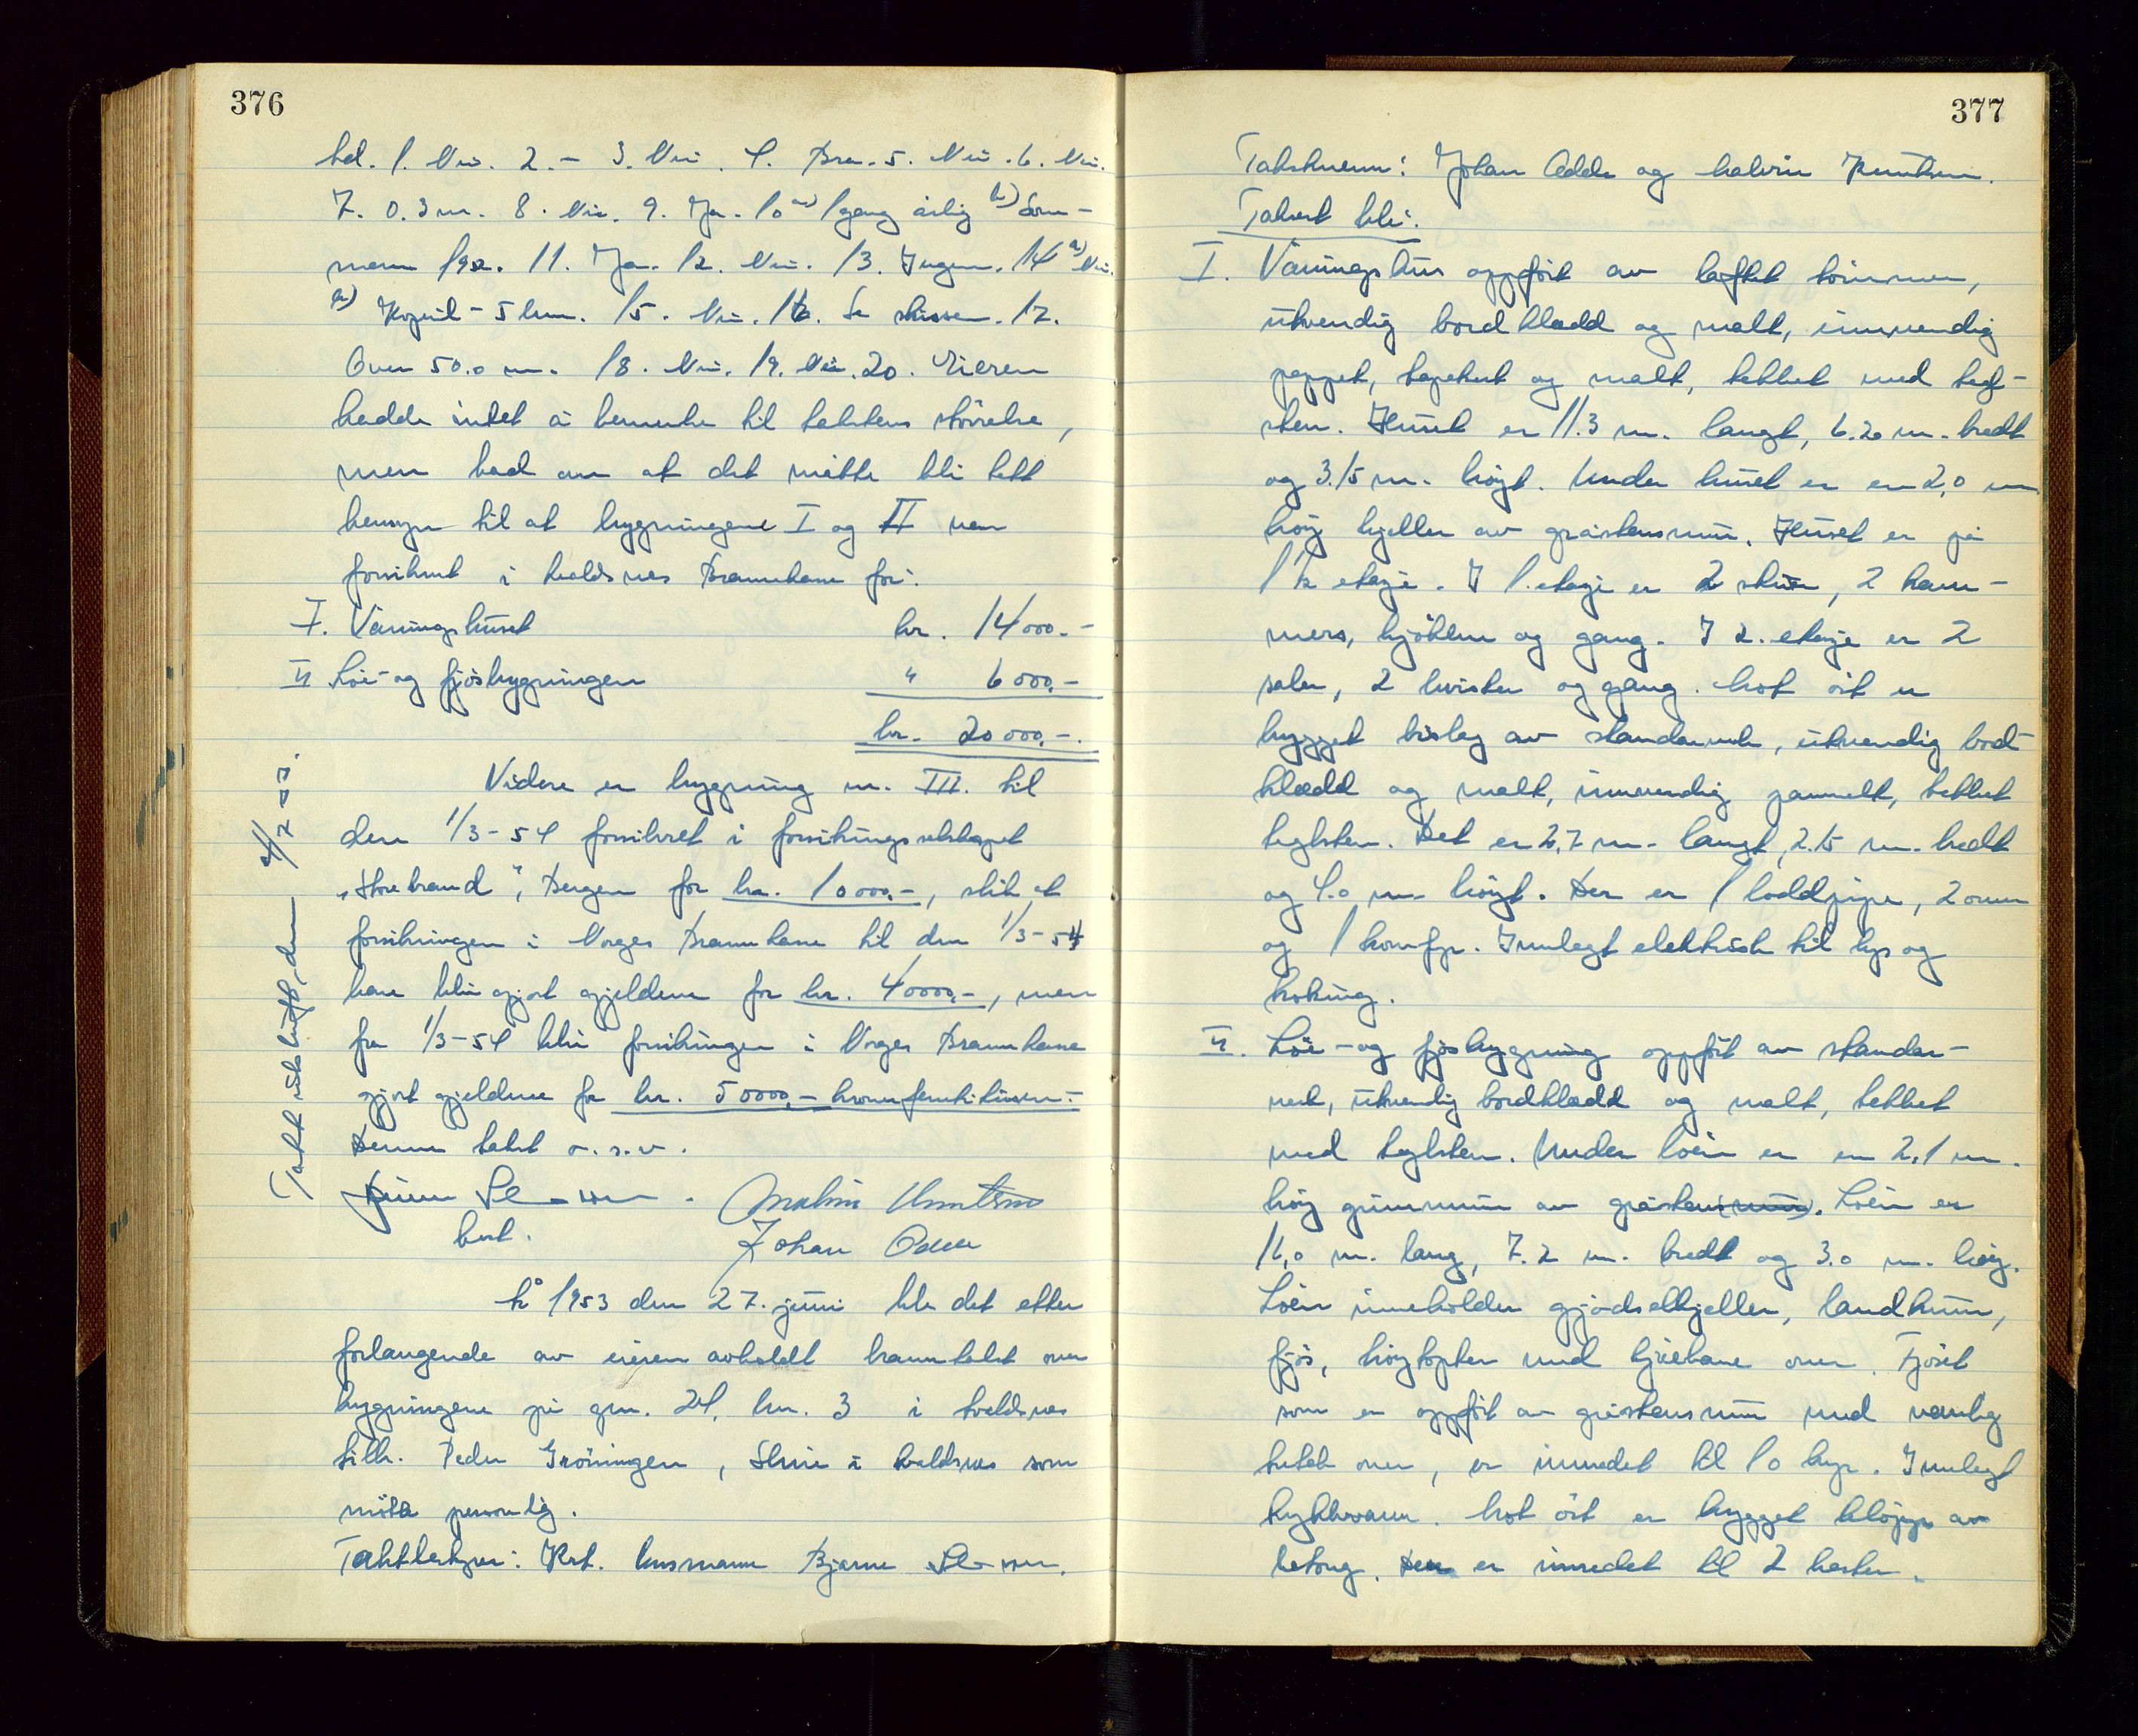 376
bel. 1. Nei. 2. - 3. Nei. 4. Bra. 5. Nei. 6. Nei.
7. 0.3 m. 8. Nei. 9. Ja. 10 a) 1 gang årlig b) Som-
meren 1952. 11. Ja. 12. Nei. 13. Ingen. 14 a) Nei.
b) 5 km. 15. Nei. 16. Se skissen. 17.
Over 50.0 m. 18. Nei. 19. Nei. 20. Eieren
hadde intet å bemerke til takstens størrelse,
men bad om at det måtte bli tatt
hensyn til at bygningene I og II var
forsikret i Haldsnes Brannkasse for:
I. Våningshuset kr. 14000.-
II Löe- og fjösbygningen " 6000,-
kr. 20000,-.
Videre er bygning nr. III. til
den 1/3-54 forsikret i forsikringsselskapet
"Storebrand", Bergen for kr. 10000,-, slik at
forsikringen i Norges Brannkasse til den 1/3-54
kan bli gjort gjeldene for kr. 40000,-, men
fra 1/3-54 blir forsikringen i Norges Brannkasse
gjort gjeldene for kr. 50000,- kronerfemtitusen.-
Denne takst o.s.v.
best.
Johan
Takst utskrift, den
På 1953 den 27. juni ble det etter
forlangende av eieren avholdt branntakst over
bygningene på gnr. 24, bnr. 3 i
tilh. Peder Gröningen, i som
møtte personlig.
Takstbestyrer: Rest. lensmann Bjarne
377
Takstmenn: Johan Odde og Knutsen.
Takset ble:
I. Våningshus oppfört av laftet tömmer,
utvendig bordkledd og malt, innvendig
pappet, tapetsert og malt, tekket med tegl-
sten. Huset er 11.3 m. langt, 6.20 m. bredt
og 3.15 m. høgt. Under huset er en 2,0 m
høg kjeller av gråstensmur. Huset er på
1 1/2 etasje. I 1. etasje er 2 stuer, 2 kam-
mers, kjökken og gang. I 2. etasje er 2
saler, 2 kvister og gang. Mot öst er
bygget bislag av standerverk, utvendig bord-
kledd og malt, innvendig pannelt, tekket
teglsten. Det er 2,7 m. langt, 2.15 m. bredt
og 4.0 m høgt. Der er 1 loddpipe, 2 ovner
og 1 komfyr. Innlagt elektrisk til lys og
koking.
II. Löe- og fjösbygning oppfört av stander-
verk, utvendig bordkledd og malt, tekket
med teglsten. Under löen er en 2,1 m.
høg grunnmur av gråsten(smur). Löen er
16,0 m. lang, 7.2 m. bredt og 3.0 m. høg.
Löen inneholder gjødselkjeller, landkum,
fjös, høytopter med kjörebane over. Fjöset
som er oppfört av gråstensmur med vanlig
tretak over, er innredet til 10 kyr. Innlagt
trykkvann. Mot öst er bygget påbygg av
betong. Der er innredet til 2 hester.